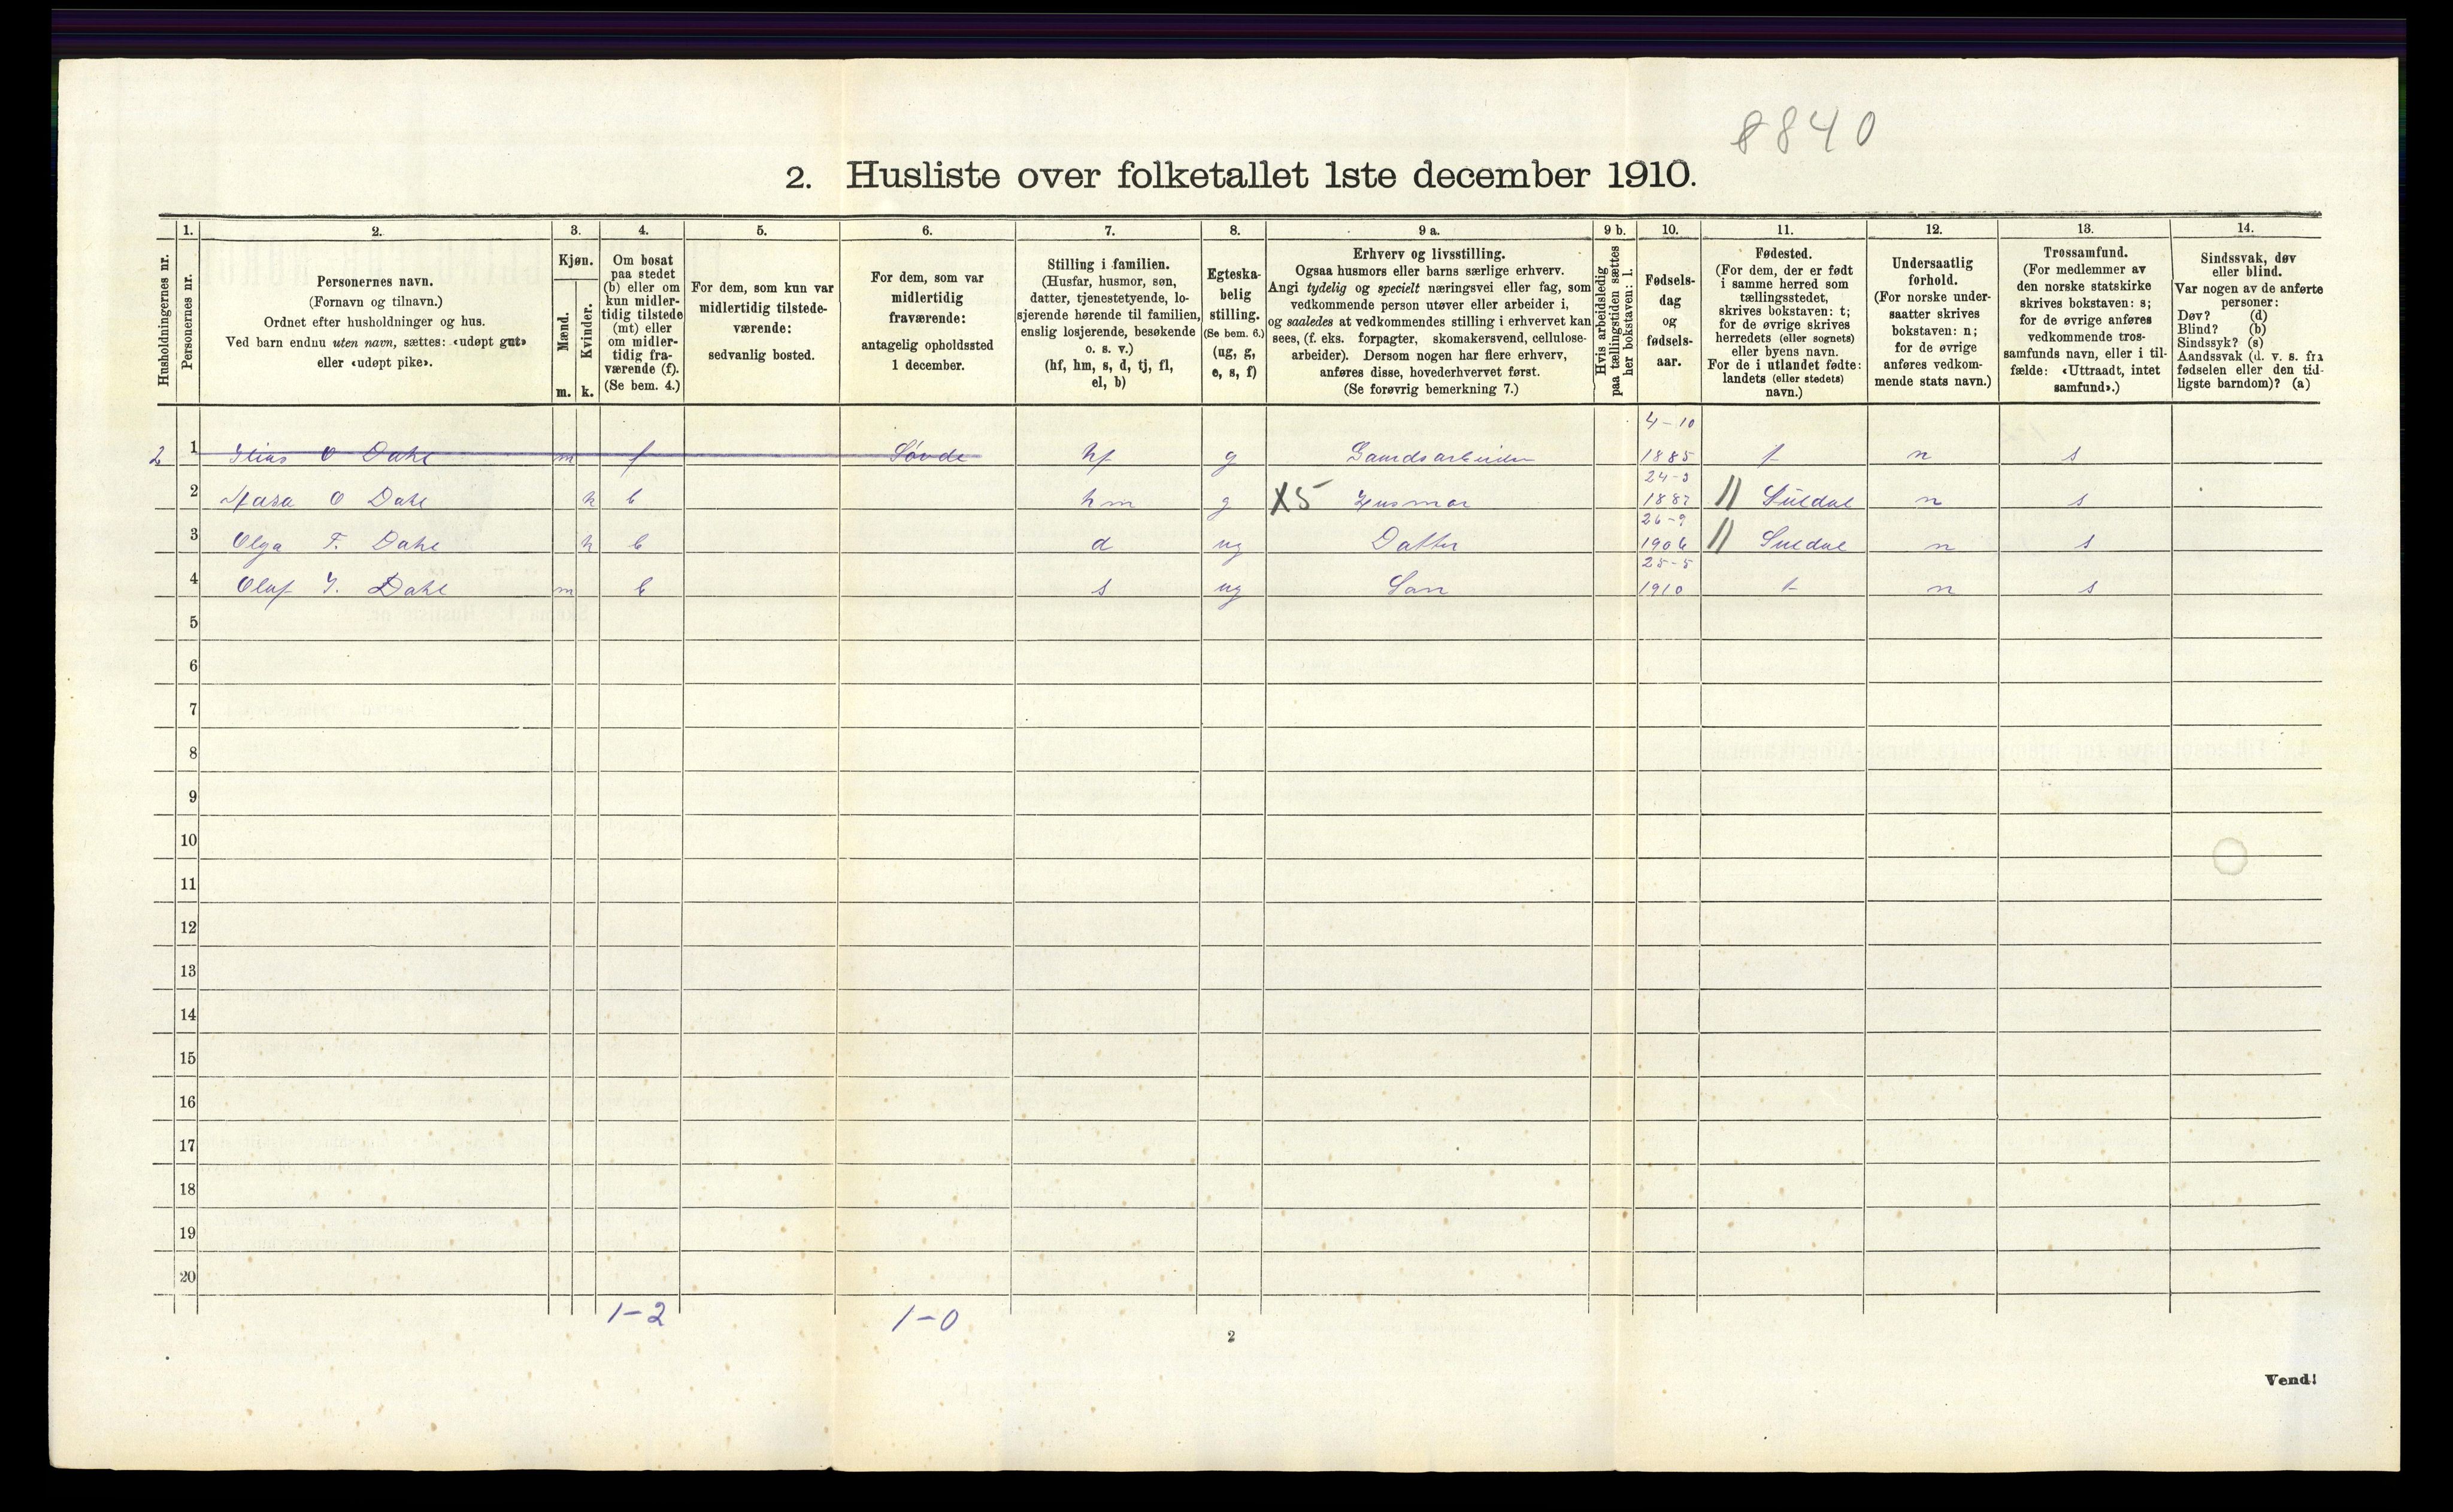 8840
2. Husliste over folketallet 1ste december 1910.
Husholdningernes nr.
1.
Personernes nr.
2.
Personernes navn.
(Fornavn og tilnavn.)
Ordnet efter husholdninger og hus.
Ved barn endnu uten navn, sættes: «udøpt gut»
eller «udøpt pike».
3.
Kjøn.
Mænd.
Kvinder.
m. k.
4.
Om bosat
paa stedet
(b) eller om
kun midler-
tidig tilstede
(mt) eller
om midler-
tidig fra-
værende (f).
(Se bem. 4.)
5.
For dem, som kun var
midlertidig tilstede-
værende:
sedvanlig bosted.
6.
For dem, som var
midlertidig
fraværende:
antagelig opholdssted
1 december.
7.
Stilling i familien.
(Husfar, husmor, søn,
datter, tjenestetyende, lo-
sjerende hørende til familien,
enslig losjerende, besøkende
o. s. v.)
(hf, hm, s, d, tj, fl,
el, b)
8.
Egteska-
belig
stilling.
(Se bem. 6.)
(ug, g,
e, s, f)
9 a.
Erhverv og livsstilling.
Ogsaa husmors eller barns særlige erhverv.
Angi tydelig og specielt næringsvei eller fag, som
vedkommende person utøver eller arbeider i,
og saaledes at vedkommendes stilling i erhvervet kan
sees, (f. eks. forpagter, skomakersvend, cellulose-
arbeider). Dersom nogen har flere erhverv,
anføres disse, hovederhvervet først.
(Se forøvrig bemerkning 7.)
9 b.
Hvis arbeidsledig
paa tællingstiden sættes
her bokstaven: l.
10.
Fødsels-
dag
og
fødsels-
aar.
11.
Fødested.
(For dem, der er født
i samme herred som
tællingsstedet,
skrives bokstaven: t;
for de øvrige skrives
herredets (eller sognets)
eller byens navn.
For de i utlandet fødte:
landets (eller stedets)
navn.)
12.
Undersaatlig
forhold.
(For norske under-
saatter skrives
bokstaven: n;
for de øvrige
anføres vedkom-
mende stats navn.)
13.
Trossamfund.
(For medlemmer av
den norske statskirke
skrives bokstaven: s;
for de øvrige anføres
vedkommende tros-
samfunds navn, eller i til-
fælde: «Uttraadt, intet
samfund».)
14.
Sindssvak, døv
eller blind.
Var nogen av de anførte
personer:
Døv? (d)
Blind? (b)
Sindssyk? (s)
Aandssvak (d. v. s. fra
fødselen eller den tid-
ligste barndom)? (a)
4-10
2 1 O Dahl m f Søvde hf g 1885 t n s
2 O Dahl k b hm g X5 Husmor 1887 // Suldal n s
26-9
3 Olga T. Dahl k b d ug Datter 1906 // Suldal n s
25-5
4 Olaf T. Dahl m b s ug Søn 1910 t n s
5
6
7
8
9
10
11
12
13
14
15
16
17
18
19
20
1-2 1-0
2
Vend!